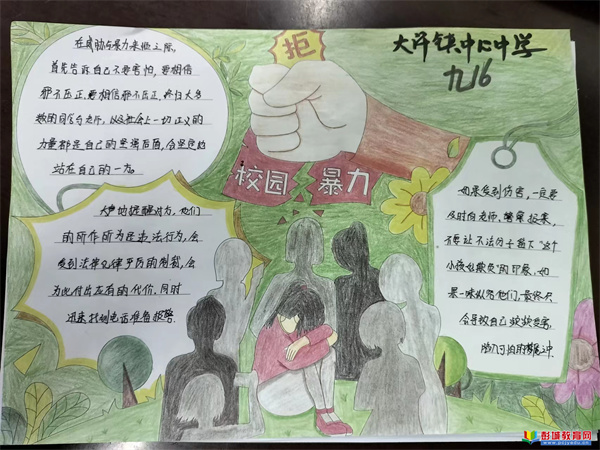 在威胁与暴力来临之际,
首先告诉自己不要害怕,要相信
邪不压正,要相信邪不压正,终归大多
数的同学与老师,以及社会上一切正义的
力量都是自己的坚强后盾,会坚定的
站在自己的一方。
大声的提醒对方,他们
的所作所为是违法行为,会
受到法律纪律严厉的制裁,会
为此付出应有的代价,同时
迅速找到电话准备报警。
拒
校园
暴力
中心中学
九16
如果受到伤害,一定要
及时向老师、警察报案,
不要让不法分子留下“这个
小孩好欺负”的印象,如
果一味纵容他们,最终只
会导致自己频频受害,
陷入可怕的梦魇之中。
彭城教育网